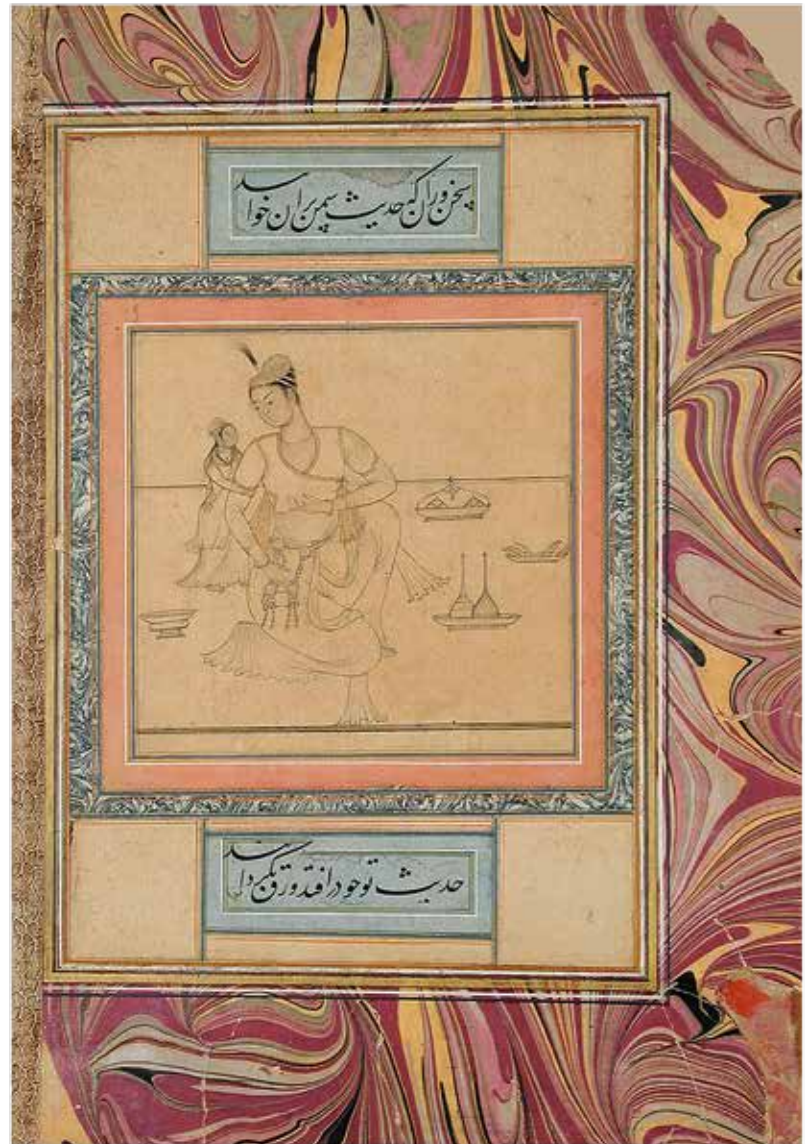 سخن وران که حدیث سیم بران خوانند
حدیث تو چو در افتد ورق بگردانند